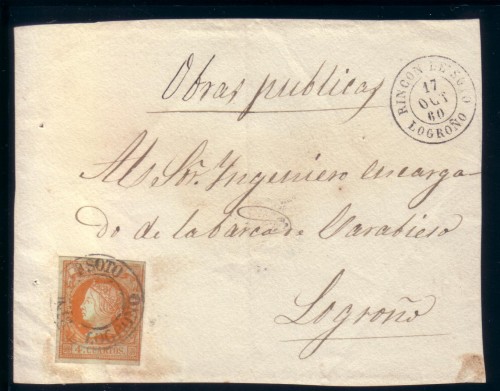 Obras publicas
RINCON DE SOTO
17
OCT
60
LOGROÑO
Al Sr. Ingeniero encarga-
do de la barca de Varabieso
Logroño
SOTO
LOGROÑO
4 CUARTOS